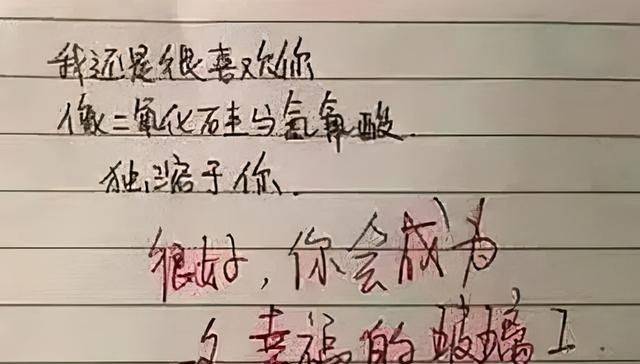 我还是很喜欢你
像二氧化硅与氢氟酸.
独溶于你.
很好,你会成为
幸福的玻璃工.